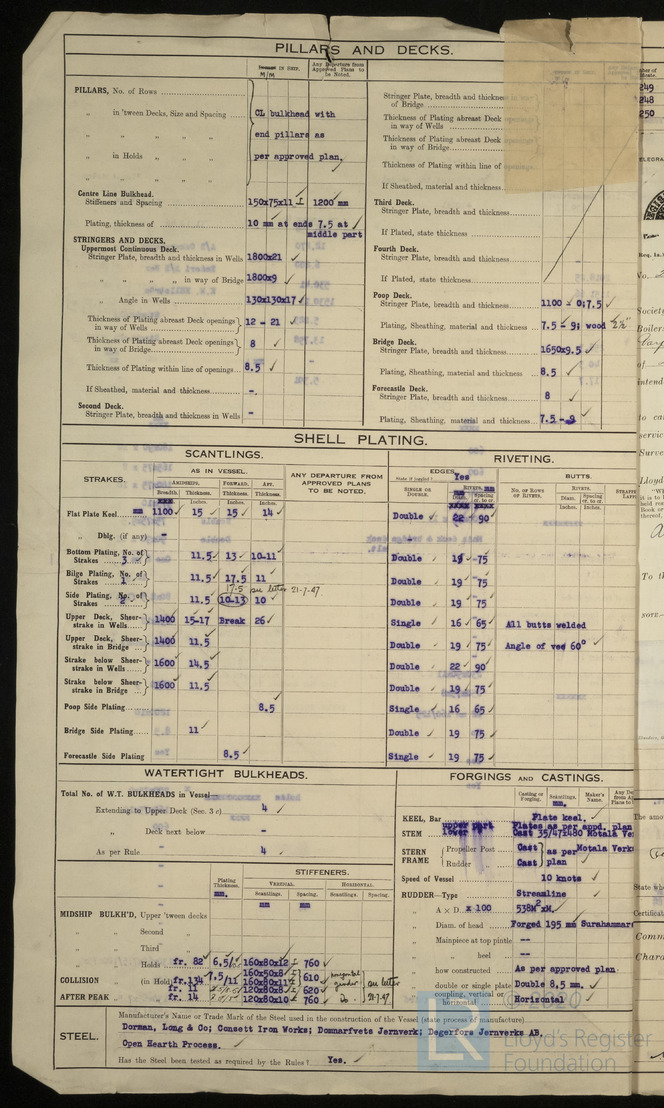 PILLARS AND DECKS.
M/M
Any Departure from Approved Plans to be Noted.
PILLARS, No. of Rows
„ in 'tween Decks, Size and Spacing CL bulkhead with
„ „ „ „ end pillars as
„ in Holds „ „ per approved plan,
„ „ „ „
Centre Line Bulkhead.
Stiffeners and Spacing 150x75x11 I 1200 mm
Plating, thickness of 10 mm at ends 7.5 at
middle part
STRINGERS AND DECKS.
Uppermost Continuous Deck.
Stringer Plate, breadth and thickness in Wells 1800x21
„ „ „ „ in way of Bridge 1800x9
„ Angle in Wells 130x130x17
Thickness of Plating abreast Deck openings in way of Wells 12 - 21
Thickness of Plating abreast Deck openings in way of Bridge 8
Thickness of Plating within line of openings 8.5
If Sheathed, material and thickness -
Second Deck.
Stringer Plate, breadth and thickness in Wells -
Stringer Plate, breadth and thickness
of Bridge
Thickness of Plating abreast Deck
in way of Wells
Thickness of Plating abreast Deck
in way of Bridge
Thickness of Plating within line of
If Sheathed, material and thickness
Third Deck.
Stringer Plate, breadth and thickness
If Plated, state thickness
Fourth Deck.
Stringer Plate, breadth and thickness
If Plated, state thickness
Poop Deck.
Stringer Plate, breadth and thickness 1100 - 0;7.5
Plating, Sheathing, material and thickness 7.5 - 9; wood 2½"
Bridge Deck.
Stringer Plate, breadth and thickness 1650x9.5
Plating, Sheathing, material and thickness 8.5
Forecastle Deck.
Stringer Plate, breadth and thickness 8
Plating, Sheathing, material and thickness 7.5 - 9
249
248
250
SHELL PLATING.
SCANTLINGS.
RIVETING.
STRAKES.
AS IN VESSEL.
ANY DEPARTURE FROM APPROVED PLANS TO BE NOTED.
EDGES.
State if joggled? Yes
BUTTS.
AMIDSHIPS. FORWARD. AFT.
Breadth. Thickness. Thickness. Thickness.
SINGLE OR DOUBLE.
RIVETS.
Spacing cr. to cr.
No. OF ROWS OF RIVETS.
RIVETS.
Diam. Spacing cr. to cr.
Inches. Inches. Inches.
Flat Plate Keel 1100 15 15 14 Double 22 90
„ Dblg. (if any) -
Bottom Plating, No. of Strakes 3 11.5 13 10-11 Double 19 75
Bilge Plating, No. of Strakes 1 11.5 17.5 11 Double 19 75
17.5 see letter 21-7-47
Side Plating, No. of Strakes 2 11.5 10-13 10 Double 19 75
Upper Deck, Sheer-strake in Wells 1400 15-17 Break 26 Single 16 65 All butts welded
Upper Deck, Sheer-strake in Bridge 1400 11.5 Double 19 75 Angle of vee 60°
Strake below Sheer-strake in Wells 1600 14.5 Double 22 90
Strake below Sheer-strake in Bridge 1600 11.5 Double 19 75
Poop Side Plating 8.5 Single 16 65
Bridge Side Plating 11 Double 19 75
Forecastle Side Plating 8.5 Single 19 75
WATERTIGHT BULKHEADS.
Total No. of W.T. BULKHEADS in Vessel—
Extending to Upper Deck (Sec. 3 c) 4
„ Deck next below -
As per Rule 4
Plating Thickness.
STIFFENERS.
VERTICAL. HORIZONTAL.
Scantlings. Spacing. Scantlings. Spacing.
mm. mm mm
MIDSHIP BULKH'D, Upper 'tween decks
„ „ Second „
„ „ Third „
„ „ Holds fr. 82 160x80x12 I 760
COLLISION „ (in Hold) fr.134 7.5/11 160x50x8 610
160x80x11
fr. 11 120x80x8 620
AFTER PEAK „ fr. 14 120x80x10 760 Do.
horizontal girder
see letter 21-7-47
FORGINGS AND CASTINGS.
Casting or Forging. Scantlings. Maker's Name.
mm.
KEEL, Bar Plate keel.
STEM upper part Plates as per appd. plan
lower Cast 35/47x480 Motala
STERN FRAME Propeller Post Cast as per Motala Verk
Rudder „ Cast plan
Speed of Vessel 10 knots
RUDDER—Type Streamline
„ A x D x 100 538M²xM.
„ Diam. of head Forged 195 mm Surahammar
„ Mainpiece at top pintle --
„ „ heel --
„ how constructed As per approved plan
„ double or single plate Double 8,5 mm.
„ coupling, vertical or horizontal Horizontal
STEEL.
Manufacturer's Name or Trade Mark of the Steel used in the construction of the Vessel (state process of manufacture)
Dorman, Long & Co; Consett Iron Works; Domnarfvets Jernverk; Degerfors Jernverks AB.
Open Hearth Process.
Has the Steel been tested as required by the Rules? Yes.
© 2020
LR
Lloyd's Register
Foundation